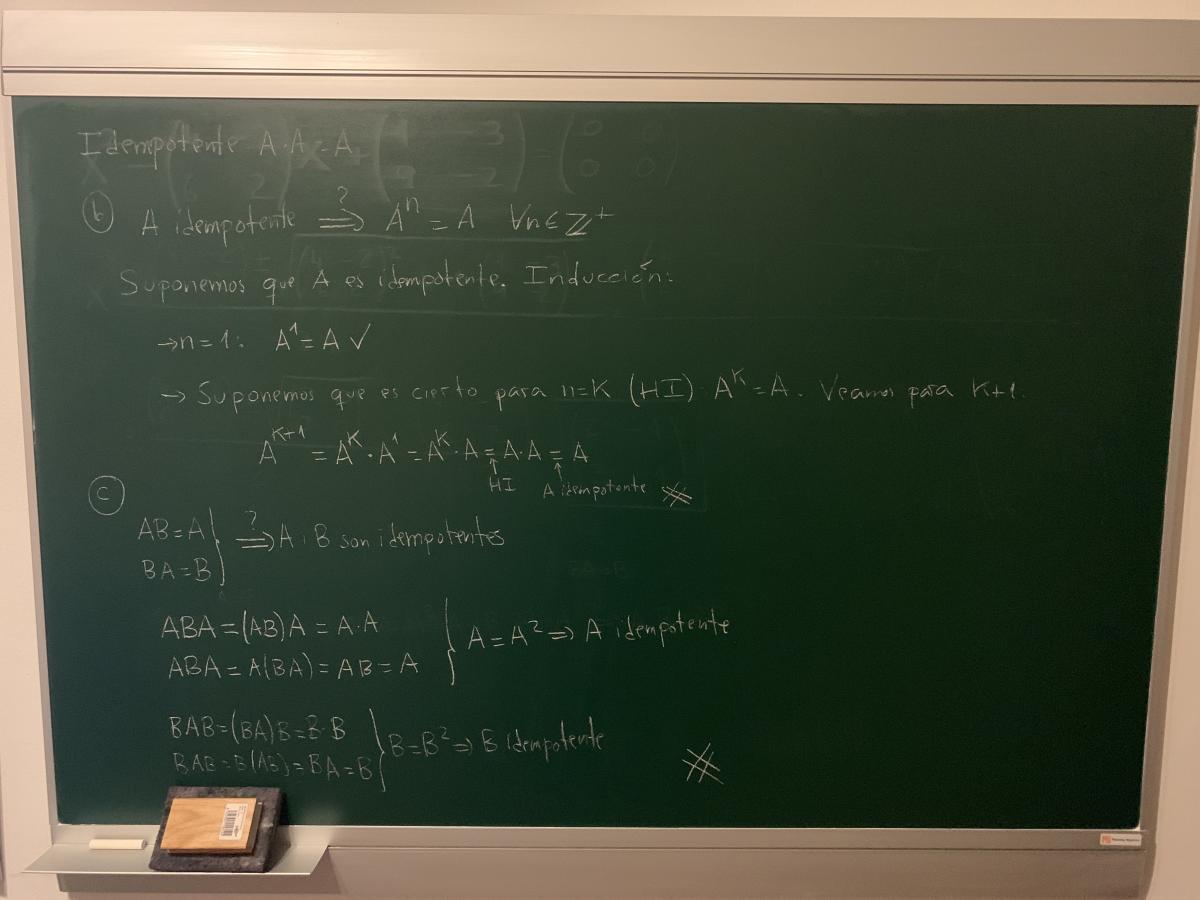 Idempotente A·A=A
b A idempotente ?⟹ Aⁿ = A ∀n∈ℤ⁺
Suponemos que A es idempotente. Inducción:
→n=1: A¹=A ✓
→ Suponemos que es cierto para n=K (HI) A^K=A. Veamos para K+1.
A^{K+1} = A^K·A¹ = A^K·A = A·A = A
HI A idempotente
c
AB=A
BA=B } ?⟹ A i B son idempotentes
ABA=(AB)A = A·A
ABA = A(BA) = AB = A } A=A² ⟹ A idempotente
BAB=(BA)B=B·B
BAB=B(AB)=BA=B } B=B² ⟹ B idempotente